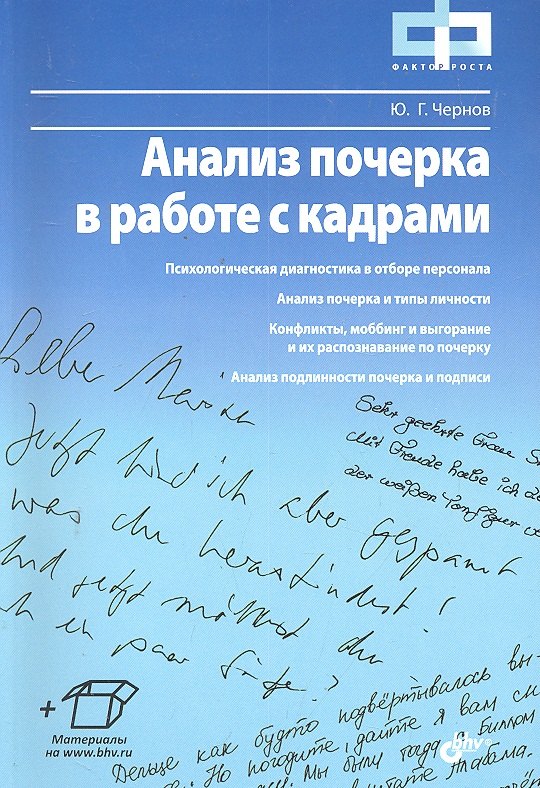 ФАКТОР РОСТА
Ю. Г. Чернов
Анализ почерка
в работе с кадрами
Психологическая диагностика в отборе персонала
Анализ почерка и типы личности
Конфликты, моббинг и выгорание
и их распознавание по почерку
Анализ подлинности почерка и подписи
Liebe
Jetzt bin ich aber gespannt
was du herausfindest!
und jetzt möchtest du
ein paar
Sehr geehrte Frau
mit Freude habe ich
der weißen
+
Материалы
на www.bhv.ru
Дельце как будто подвёртывалось вы-
Но погодите, дайте я вам
Мы были тогда с Биллом
Алабама.
bhv®